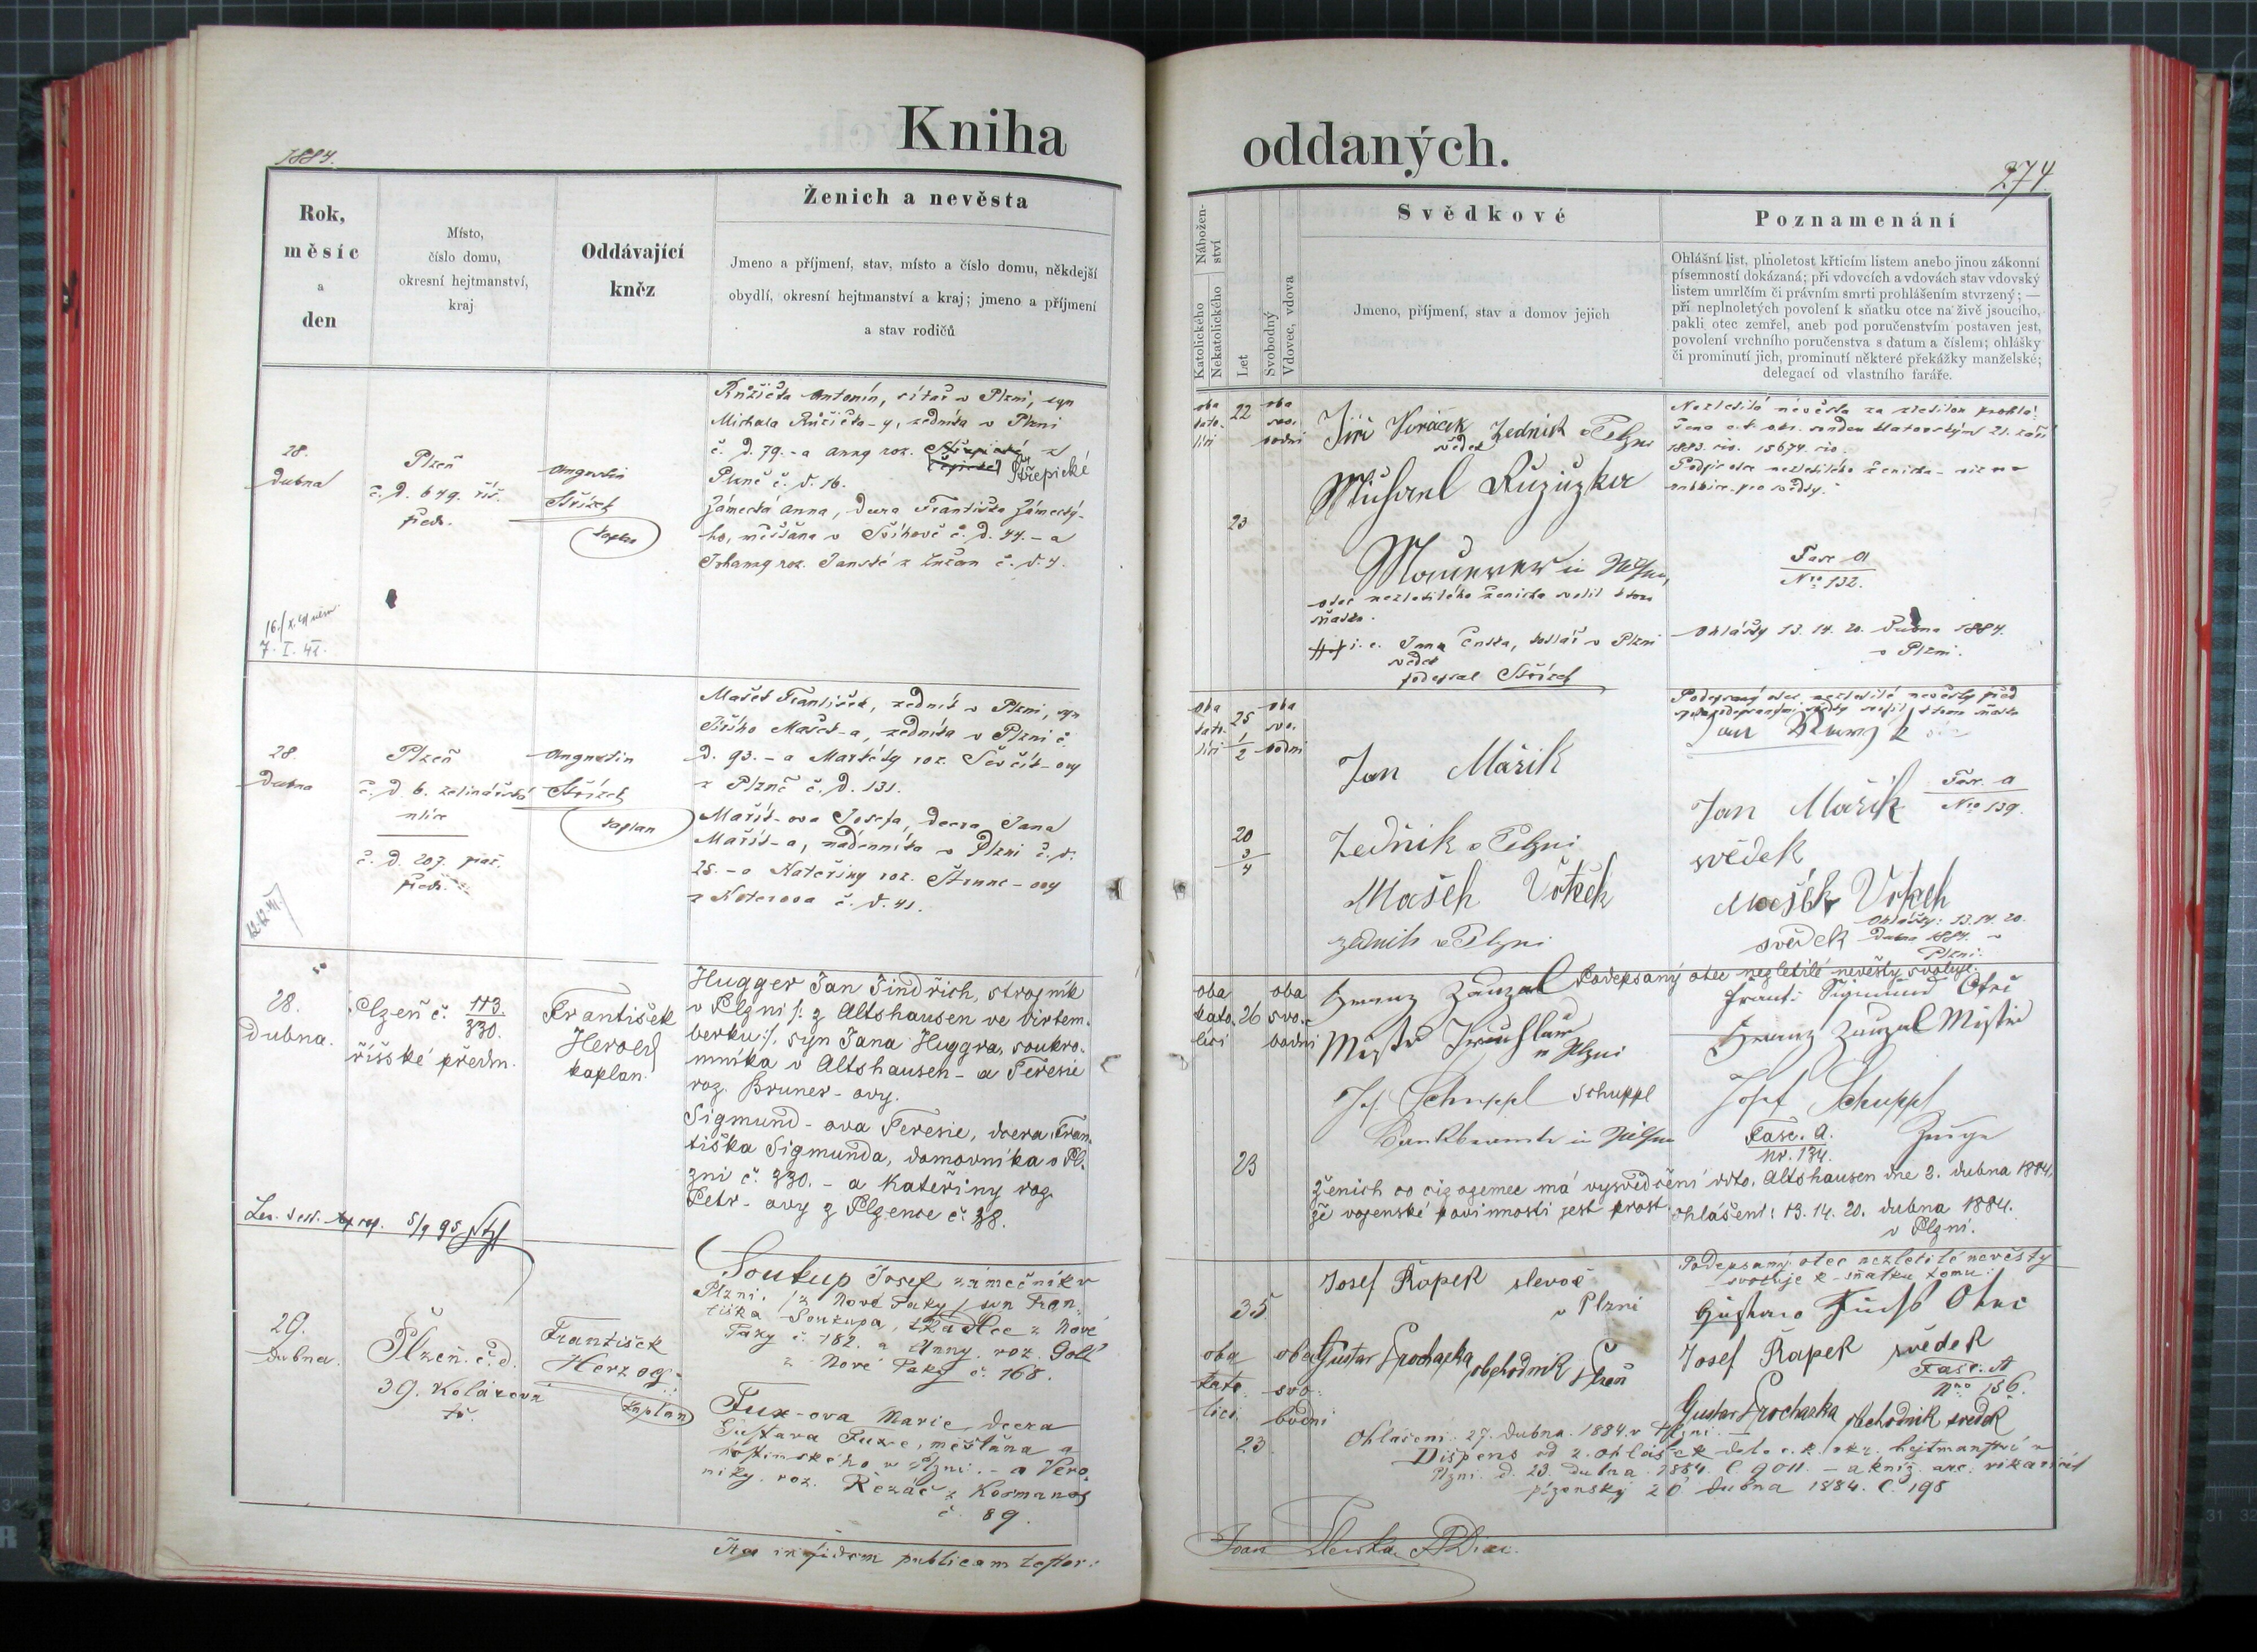 Kniha
oddaných.
1884.
274
Rok,
měsíc
a
den
Místo,
číslo domu,
okresní hejtmanství,
kraj
Oddávající
kněz
Ženich a nevěsta
Jmeno a příjmení, stav, místo a číslo domu, někdejší
obydlí, okresní hejtmanství a kraj; jmeno a příjmení
a stav rodičů
Nábožen-
ství
Katolického
Nekatolického
Let
Svobodný
Vdovec, vdova
Svědkové
Jmeno, příjmení, stav a domov jejich
Poznamenání
Ohlášní list, plnoletost křticím listem anebo jinou zákonní
písemností dokázaná; při vdovcích a vdovách stav vdovský
listem umrlčím či právním smrti prohlášením stvrzený; —
při neplnoletých povolení k sňatku otce na živě jsoucího,
pakli otec zemřel, aneb pod poručenstvím postaven jest,
povolení vrchního poručenstva s datum a číslem; ohlášky
či prominutí jich, prominutí některé překážky manželské;
delegací od vlastního faráře.
28.
Dubna
Plzeň
č. d. 649. říš.
předm.
Augustin
Střízek
kaplan
Růžička Antonín, sítař v Plzni, syn
Michala Růžička-y, zedníka v Plzni
č. d. 79. - a Anny roz.
Střepické
Plzně č. d. 16.
Zámecká Anna, dcera Františka Zámecký-
ho, měšťana v Švihově č. d. 44. - a
Johanny roz. Janské z Lužan č. d. 4.
7. I. 41.
oba
kato-
líci
22
oba
svo-
bodni
23
Jiří Viráček Zedník v Plzni
svědek
Michael Růžička
Maurer in Pilsen,
otec nezletilého ženicha svolil k tomu
sňatku.
svědek
podepsal Střízek
Nezletilá nevěsta za zletilou prohlá-
1883. čís. 15674. civ.
Fasc. A
Nro 132.
Ohlášky 13. 14. 20. dubna 1884.
v Plzni.
28.
Dubna
Plzeň
č. d. 6. zelinářská
ulice
č. d. 207. praž.
předm.
Augustin
Střízek
kaplan
Mašek František, zedník v Plzni, syn
Jiřího Mašek-a, zedníka v Plzni č.
d. 93. - a Markéty roz. Ševčík-ovy
z Plzně č. d. 131.
Mařík-ova Josefa, dcera Jana
Mařík-a, nádenníka v Plzni č. d.
25. - a Kateřiny roz. Štrunc-ovy
z Koterova č. d. 41.
oba
kato-
líci
25
1
2
oba
svo-
bodni
20
3
4
Jan Mařik
Zedník v Plzni
Mašek Vojtěch
zedník v Plzni
Podepsaný otec nezletilé nevěsty před
Jan Mařík
svědek
Fasc. A
Nro 139.
Mašek Vojtěch
svědek
Ohlášky: 13. 14. 20.
Dubna 1884. v
Plzni.
28.
Dubna.
Plzeň č. 113.
330.
říšské předm.
František
Herold
kaplan.
Hugger Jan Jindřich, strojník
v Plzni /: z Altshausen ve Virtem-
berku :/, syn Jana Huggra, soukro-
mníka v Altshausen - a Teresie
roz. Bruner-ovy.
Sigmund-ova Teresie, dcera Fran-
tiška Sigmunda, domovníka v Pl-
zni č. 330. - a Kateřiny roz.
Petr-ovy z Plzence č. 38.
oba
kato-
líci
26
oba
svo-
bodni
23
Franz Zauzal
in Plzni
Jos. Schuppl Schuppl
Bankbeamte in Pilsen
Podepsaný otec nezletilé nevěsty svoluje.
Frant. Sigmund Otec
Franz Zauzal
Josef Schuppl
Zeuge
Fasc. A.
Nr. 134.
Ženich co cizozemec má vysvědčení ddto. Altshausen dne 3. dubna 1884,
že vojenské povinnosti jest prost. Ohlášení: 13. 14. 20. dubna 1884.
v Plzni.
29.
dubna.
Plzeň. č. d.
39. Kolárova
tř.
František
Herzog
kaplan
Soukup Josef zámečník v
Plzni, /z Nové Paky/ syn Fran-
tiška Soukupa, tkadlce z Nové
Paky č. 182. a Anny roz. Goll
z Nové Paky č. 168.
Fux-ova Marie dcera
Gustava Fuxe, měšťana a
hostinského v Plzni. - a Vero-
niky. roz. Řezáč z Kosmanos
č. 89.
35
oba
kato-
líci
oba
svo-
bodni
23
Josef Řapek slevač
v Plzni
Gustav Prochazka obchodník Plzeň
Podepsaný otec nezletilé nevěsty
svoluje k sňatku tomu:
Gustav Fuchs Otec
Josef Řapek svědek
Fasc. A
Nro 156.
Gustav Prochazka obchodník svědek
Ohlášení 27. dubna 1884. v Plzni. —
Dispens od 2. ohlášek dto. c. k. okr. hejtmanství v
Plzni. d. 23. dubna 1884. č. 9011. - a kníž. arc. vikariát
plzenský 26 dubna 1884. č. 198
Ita in fidem publicam testor: